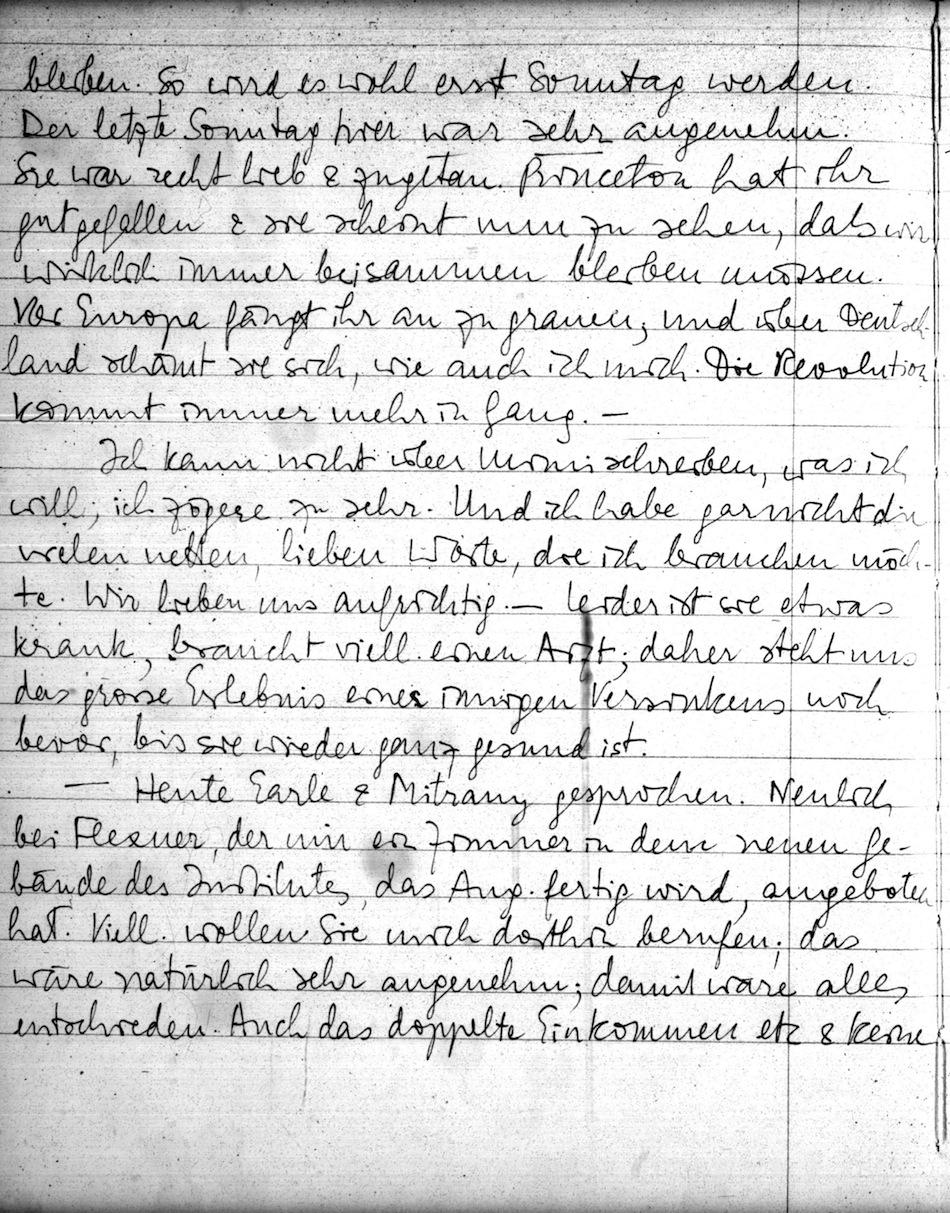 bleiben. So wird es wohl erst Sonntag werden.
Der letzte Sonntag hier war sehr angenehm.
Sie war recht lieb & zugetan. Princeton hat ihr
gut gefallen & sie scheint nun zu sehen, daß wir
wirklich immer beisammen bleiben müssen.
Vor Europa fängt ihr an zu grauen, und über Deutsch-
land schämt sie sich, wie auch ich mich. Die Revolution
kommt immer mehr in Gang. —
Ich kann nicht über Mimi schreiben, was ich
will; ich zögere zu sehr. Und ich habe garnicht die
vielen netten, lieben Worte, die ich brauchen möch-
te. Wir lieben uns aufrichtig. — Leider ist sie etwas
krank, braucht viell. einen Arzt; daher steht uns
das grosse Erlebnis eines innigen Versinkens noch
bevor, bis sie wieder ganz gesund ist.
— Heute Earle & Mitrany gesprochen. Neulich
bei Flexner, der mir ein Zimmer in dem neuen Ge-
bäude des Institutes, das Aug. fertig wird, angeboten
hat. Viell. wollen Sie mich dorthin berufen; das
wäre natürlich sehr angenehm; damit wäre alles
entschieden. Auch das doppelte Einkommen etz & keine